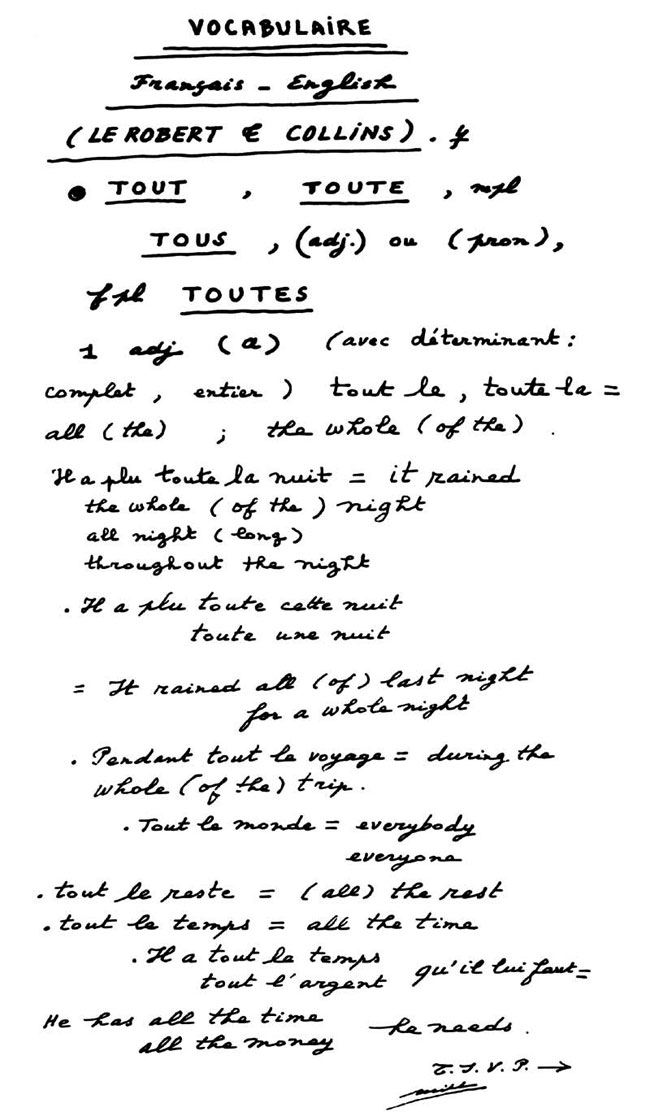 VOCABULAIRE
Français - English
(LE ROBERT & COLLINS).
• TOUT, TOUTE, mpl
TOUS, (adj.) ou (pron),
fpl TOUTES
1 adj (a) (avec déterminant:
complet, entier) tout le, toute la =
all (the) ; the whole (of the).
Il a plu toute la nuit = it rained
the whole (of the) night
all night (long)
throughout the night
. Il a plu toute cette nuit
toute une nuit
= It rained all (of) last night
for a whole night
. Pendant tout le voyage = during the
whole (of the) trip.
. Tout le monde = everybody
everyone
. tout le reste = (all) the rest
. tout le temps = all the time
. Il a tout le temps
tout l'argent qu'il lui faut =
He has all the time
all the money he needs.
T.S.V.P. →